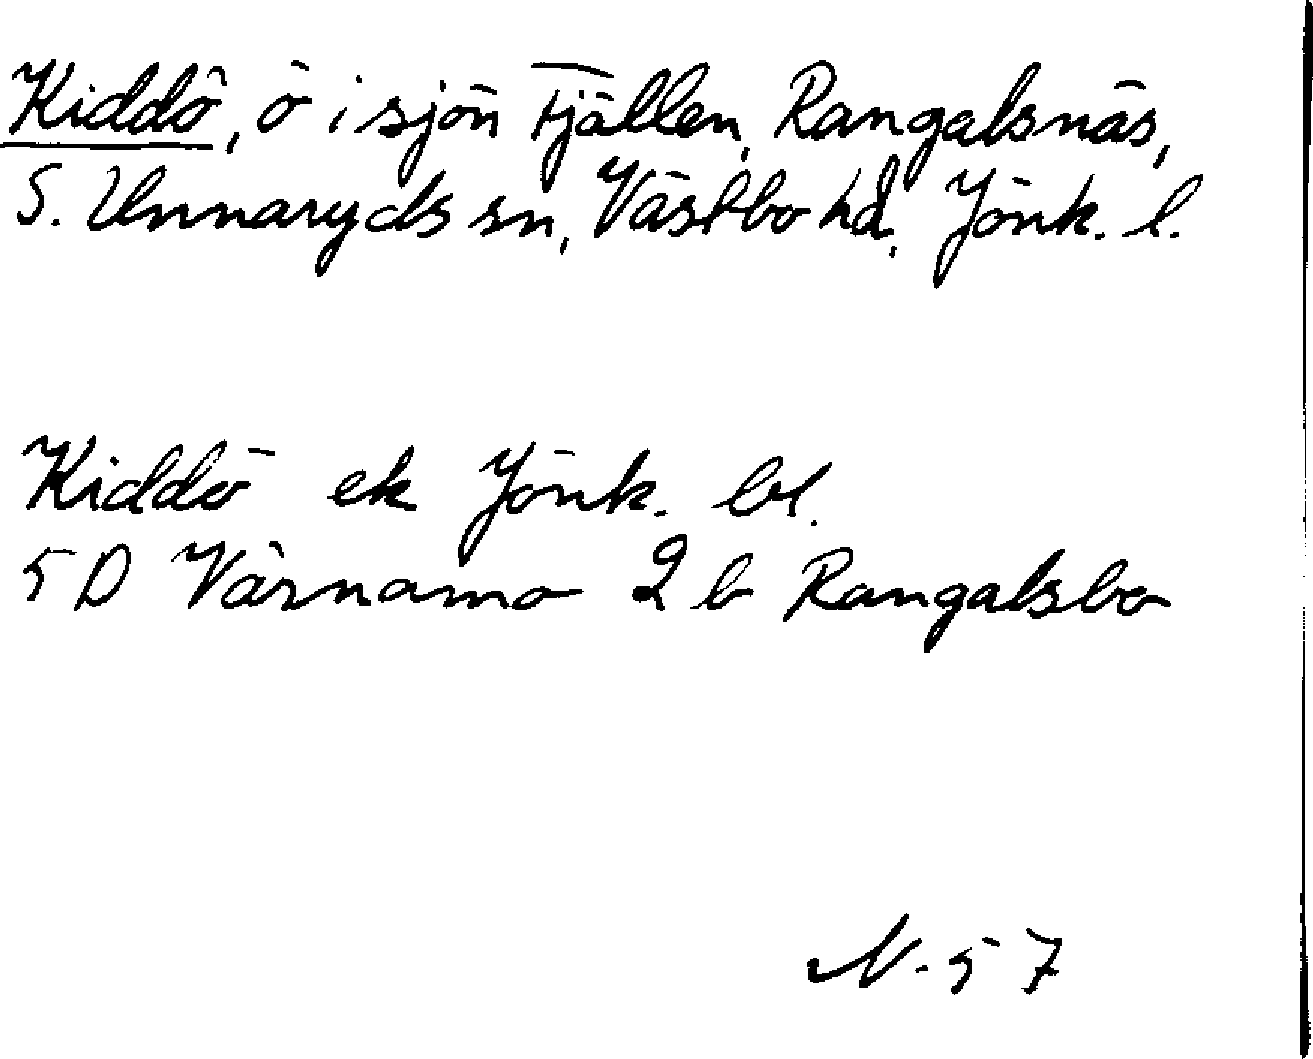 Kiddö, ö i sjön Fjällen, Rangalsnäs,
S. Unnaryds sn, Västbo hd, Jönk. l.
Kiddö ek Jönk. bl.
5D Värnamo 2b Rangalsbo
N. 57